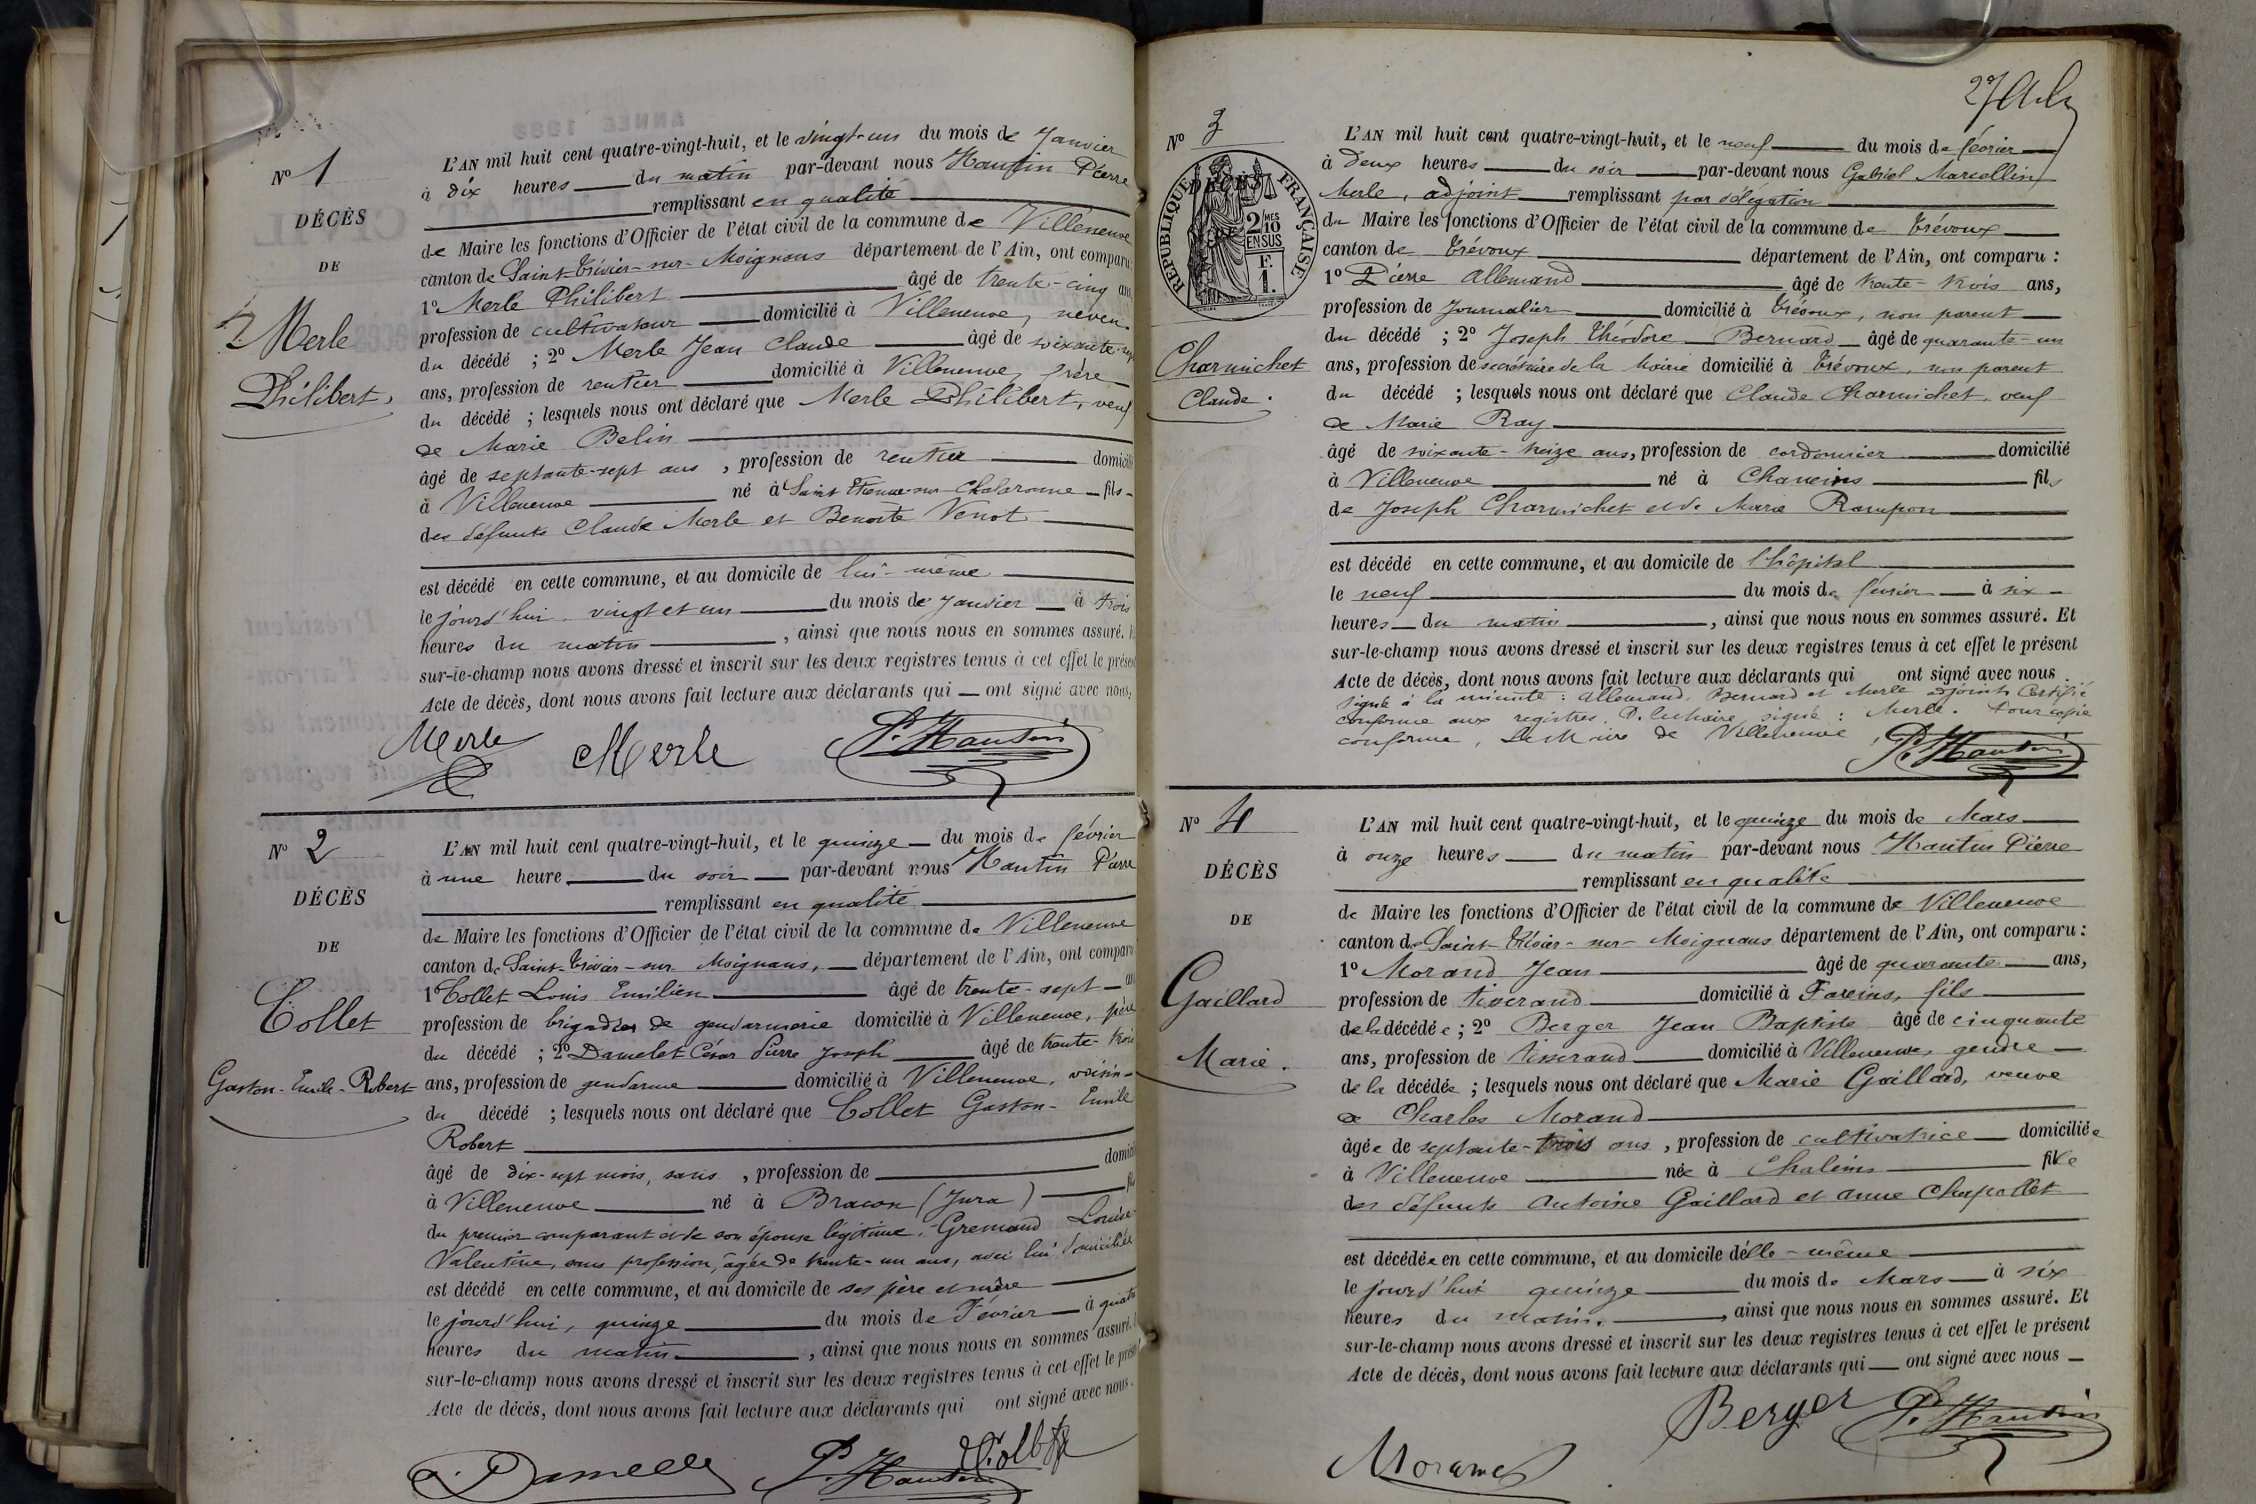 Nº 1
DÉCÈS
DE
Merle
Philibert,
L'AN mil huit cent quatre-vingt-huit, et le vingt-un du mois de Janvier
à dix heures du matin par-devant nous Hautin Pierre
remplissant en qualité
de Maire les fonctions d'Officier de l'état civil de la commune de Villeneuve
canton de Saint-Trivier-sur-Moignans département de l'Ain, ont comparu
1º Merle Philibert âgé de trente-cinq ans
profession de cultivateur domicilié à Villeneuve, neveu
du décédé ; 2º Merle Jean Claude âgé de soixante-sept
ans, profession de rentier domicilié à Villeneuve, frère
du décédé ; lesquels nous ont déclaré que Merle Philibert, veuf
de Marie Belin
âgé de septante-sept ans, profession de rentier domicilié
à Villeneuve né à Saint Etienne-sur-Chalaronne fils
des défunts Claude Merle et Benoite Venot
est décédé en cette commune, et au domicile de lui-même
le jourd'hui vingt et un du mois de Janvier à trois
heures du matin, ainsi que nous nous en sommes assuré. Et
sur-le-champ nous avons dressé et inscrit sur les deux registres tenus à cet effet le présent
Acte de décès, dont nous avons fait lecture aux déclarants qui ont signé avec nous,
Merle Merle P. Hautin
Nº 2
DÉCÈS
DE
Collet
Gaston-Emile-Robert
L'AN mil huit cent quatre-vingt-huit, et le quinze du mois de février
à une heure du soir par-devant nous Hautin Pierre
remplissant en qualité
de Maire les fonctions d'Officier de l'état civil de la commune de Villeneuve
canton de Saint-Trivier-sur-Moignans, département de l'Ain, ont comparu
1º Collet Louis Emilien âgé de trente-sept ans
profession de brigadier de gendarmerie domicilié à Villeneuve, père
du décédé ; 2º Damelet César Pierre Joseph âgé de trente-trois
ans, profession de gendarme domicilié à Villeneuve, voisin
du décédé ; lesquels nous ont déclaré que Collet Gaston-Emile
Robert
âgé de dix-sept mois, sans, profession de domicilié
à Villeneuve né à Bracon (Jura) fils
du premier comparant et de son épouse légitime, Gremaud Louise-
Valentine, sans profession, âgée de trente-un ans, avec lui domiciliée
est décédé en cette commune, et au domicile de ses père et mère
le jourd'hui, quinze du mois de Février à quatre
heures du matin, ainsi que nous nous en sommes assuré.
sur-le-champ nous avons dressé et inscrit sur les deux registres tenus à cet effet le présent
Acte de décès, dont nous avons fait lecture aux déclarants qui ont signé avec nous.
P. Hautin
Nº 3
DÉCÈS
RÉPUBLIQUE FRANÇAISE
2/10MES
EN SUS
F.
1.
Charmichet
Claude.
L'AN mil huit cent quatre-vingt-huit, et le neuf du mois de février
à deux heures du soir par-devant nous Gabriel Marcellin
Merle, adjoint remplissant par délégation
du Maire les fonctions d'Officier de l'état civil de la commune de Trévoux
canton de Trévoux département de l'Ain, ont comparu :
1º Pierre Allemand âgé de trente-trois ans,
profession de Journalier domicilié à Trévoux, non parent
du décédé ; 2º Joseph Théodore Bernard âgé de quarante-un
ans, profession de secrétaire de la Mairie domicilié à Trévoux, non parent
du décédé ; lesquels nous ont déclaré que Claude Charmichet, veuf
de Marie Ray
âgé de soixante-treize ans, profession de cordonnier domicilié
à Villeneuve né à Chaneins fils
de Joseph Charmichet et de Marie Rampon
est décédé en cette commune, et au domicile de l'hôpital
le neuf du mois de février à six
heures du matin, ainsi que nous nous en sommes assuré. Et
sur-le-champ nous avons dressé et inscrit sur les deux registres tenus à cet effet le présent
Acte de décès, dont nous avons fait lecture aux déclarants qui ont signé avec nous.
Signé à la minute : Allemand, Bernard et Merle adjoint. Certifié
conforme aux registres. P. le Maire, signé : Merle. Pour copie
conforme, Le Maire de Villeneuve, P. Hautin
Nº 4
DÉCÈS
DE
Gaillard
Marie.
L'AN mil huit cent quatre-vingt-huit, et le quinze du mois de Mars
à onze heures du matin par-devant nous Hautin Pierre
remplissant en qualité
de Maire les fonctions d'Officier de l'état civil de la commune de Villeneuve
canton de Saint-Trivier-sur-Moignans département de l'Ain, ont comparu :
1º Morand Jean âgé de quarante ans,
profession de tisserand domicilié à Fareins, fils
de la décédée ; 2º Berger Jean Baptiste âgé de cinquante
ans, profession de tisserand domicilié à Villeneuve, gendre
de la décédée ; lesquels nous ont déclaré que Marie Gaillard, veuve
de Charles Morand
âgée de septante-trois ans, profession de cultivatrice domiciliée
à Villeneuve née à Chaleins fille
des défunts Antoine Gaillard et Anne Chapollet
est décédée en cette commune, et au domicile d'elle-même
le jourd'hui quinze du mois de Mars à six
heures du matin, ainsi que nous nous en sommes assuré. Et
sur-le-champ nous avons dressé et inscrit sur les deux registres tenus à cet effet le présent
Acte de décès, dont nous avons fait lecture aux déclarants qui ont signé avec nous
Berger P. Hautin
Morand